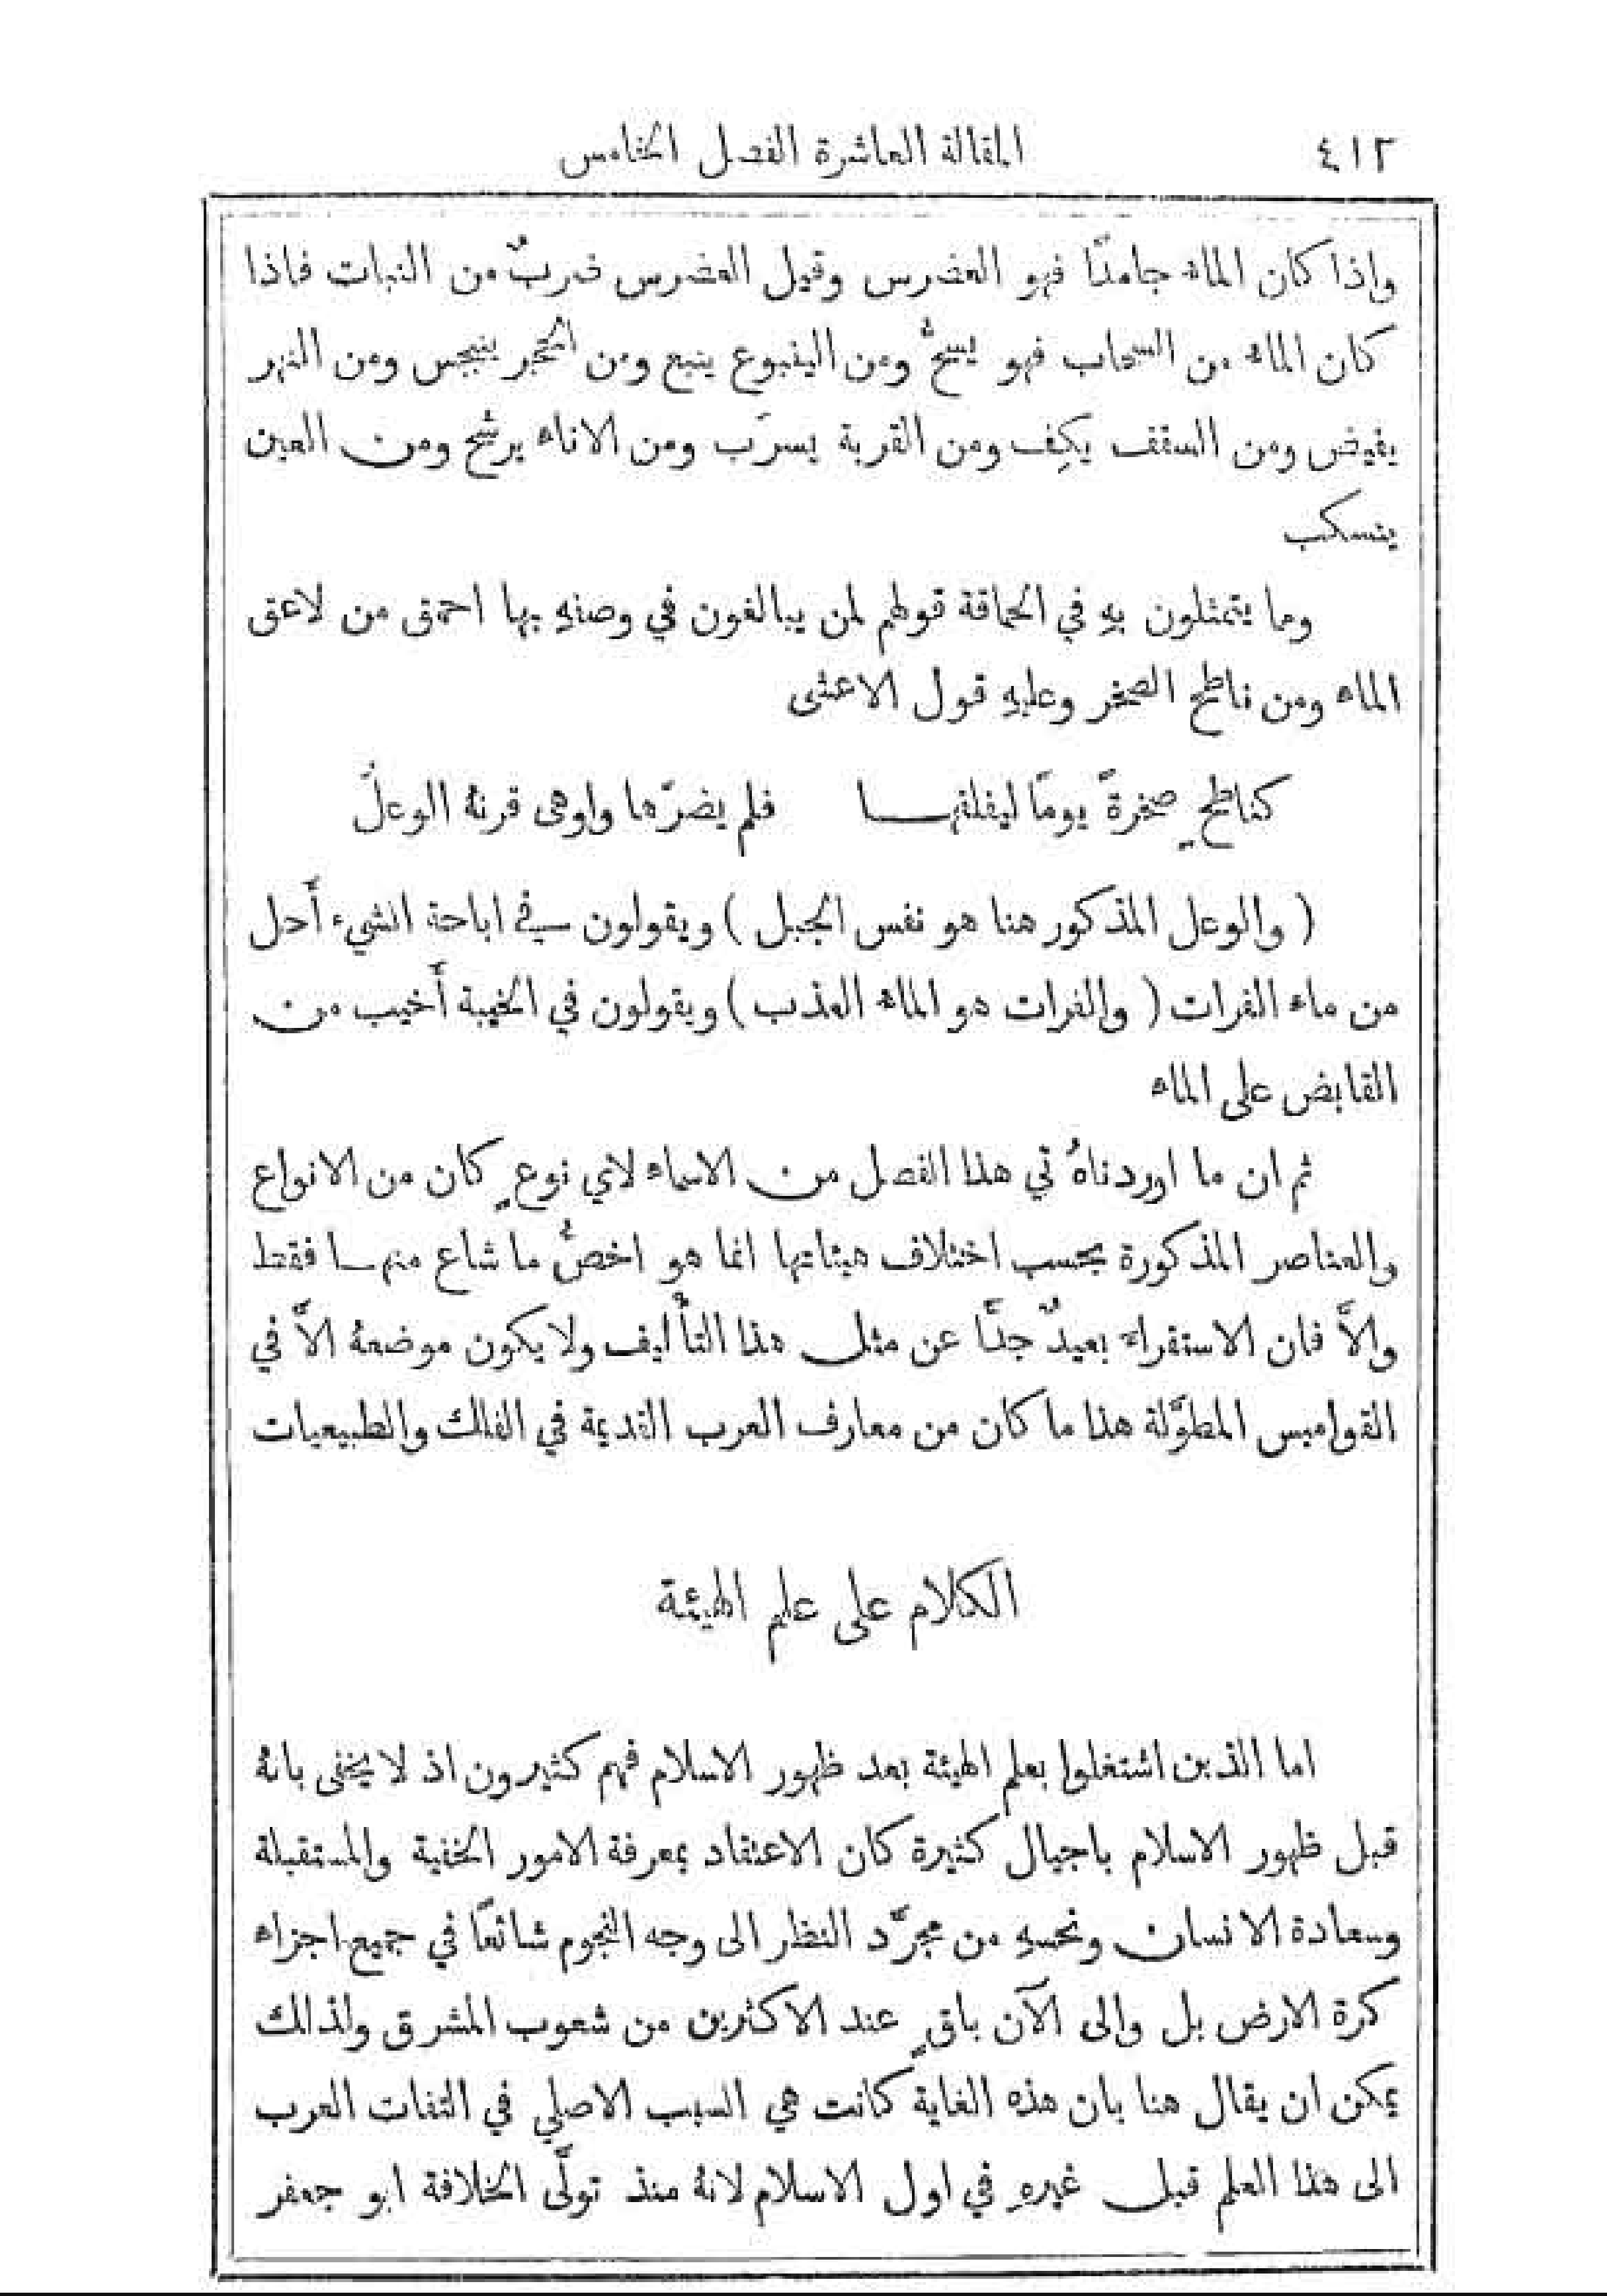 ٤١٢ المقالة العاشرة الفصل الخامس
واذا كان الماء جامدًا فهو العضرس وقيل العضرس ضربٌ من النبات فاذا
كان الماء من السحاب فهو يسحُّ ومن الينبوع ينبع ومن الحجر ينبجس ومن النهر
يفيض ومن السقف يكِف ومن القربة يسرَب ومن الاناء يرشح ومن العين
ينسكب
وما يتمثلون بهِ في الحماقة قولهم لمن يبالغون في وصفهِ بها احمق من لاعق
الماء ومن ناطح الصخر وعليهِ قول الاعشى
كناطحٍ صخرةً يومًا ليفلقهـــا فلم يضرّها واوهى قرنهُ الوعلُ
( والوعل المذكور هنا هو نفس الجبل ) ويقولون في اباحة الشيء أَحل
من ماء الفرات ( والفرات هو الماء العذب ) ويقولون في الخيبة أَخيب من
القابض على الماء
ثم ان ما اوردناهُ في هذا الفصل من الاسماء لاي نوعٍ كان من الانواع
والعناصر المذكورة بحسب اختلاف هيئاتها انما هو اخصُّ ما شاع منهـا فقط
والاَّ فان الاستقراء بعيدٌ جدًّا عن مثل هذا التأليف ولا يكون موضعهُ الاَّ في
القواميس المطوَّلة هذا ما كان من معارف العرب القديمة في الفلك والطبيعيات
الكلام على علم الهيئة
اما الذين اشتغلوا بعلم الهيئة بعد ظهور الاسلام فهم كثيرون اذ لا يخفى بانهُ
قبل ظهور الاسلام باجيال كثيرة كان الاعتقاد بمعرفة الامور الخفية والمستقبلة
وسعادة الانسان ونحسهِ من مجرَّد النظر الى وجه النجوم شائعًا في جميع اجزاء
كرة الارض بل والى الآن باقٍ عند الاكثرين من شعوب المشرق ولذلك
يمكن ان يقال هنا بان هذه الغاية كانت هي السبب الاصلي في التفات العرب
الى هذا العلم قبل غيرهِ في اول الاسلام لانهُ منذ تولَّى الخلافة ابو جعفر